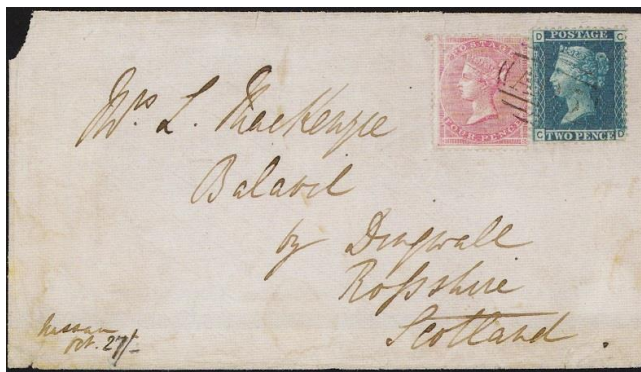 POSTAGE
FOUR PENCE
D POSTAGE C
C TWO PENCE D
Mrs L. MacKenzie
Balavil
by Dingwall
Rossshire
Scotland.
Nassau
Oct. 27/-